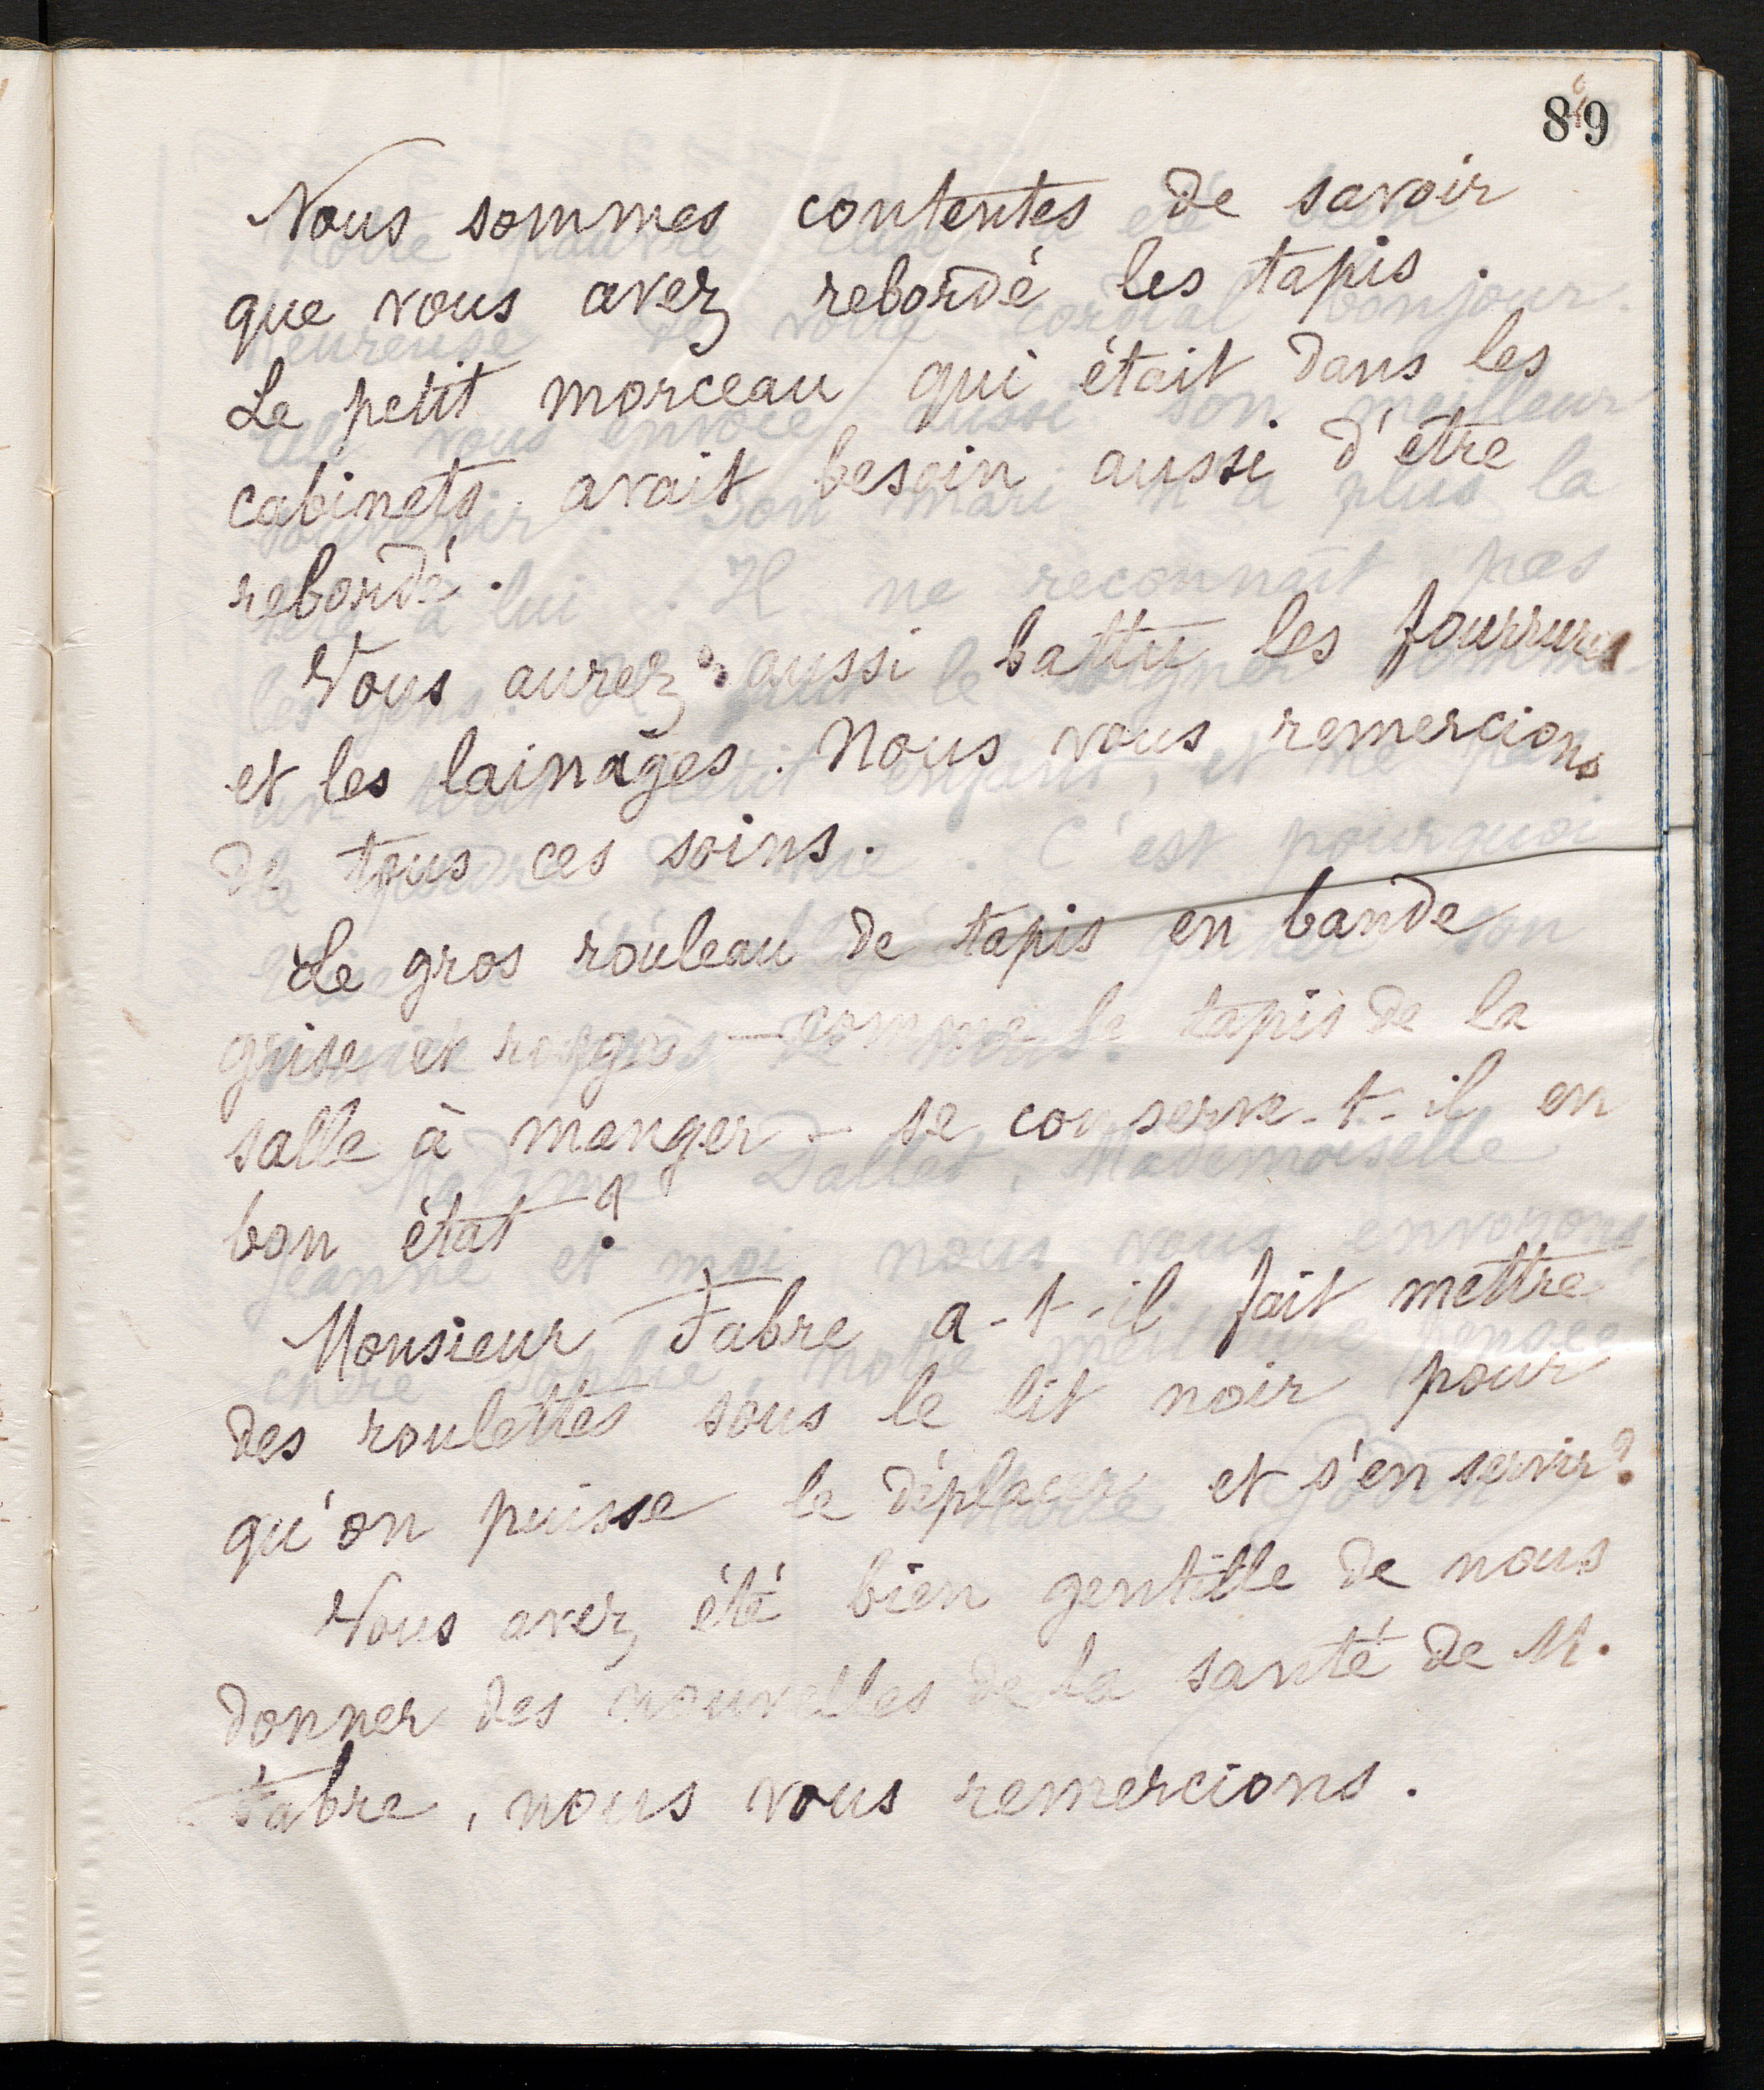 89
Nous sommes contentes de savoir
que vous avez rebordé les tapis.
Le petit morceau qui était dans les
cabinets avait besoin aussi d'être
rebordé.
Vous aurez aussi battu les fourrures
et les lainages. Nous vous remercions
de tous ces soins.
Le gros rouleau de tapis en bande
grise et rouge — comme le tapis de la
salle à manger — se conserve-t-il en
bon état ?
Monsieur Fabre a-t-il fait mettre
des roulettes sous le lit noir pour
qu'on puisse le déplacer et s'en servir ?
Vous avez été bien gentille de nous
donner des nouvelles de la santé de M.
Fabre, nous vous remercions.